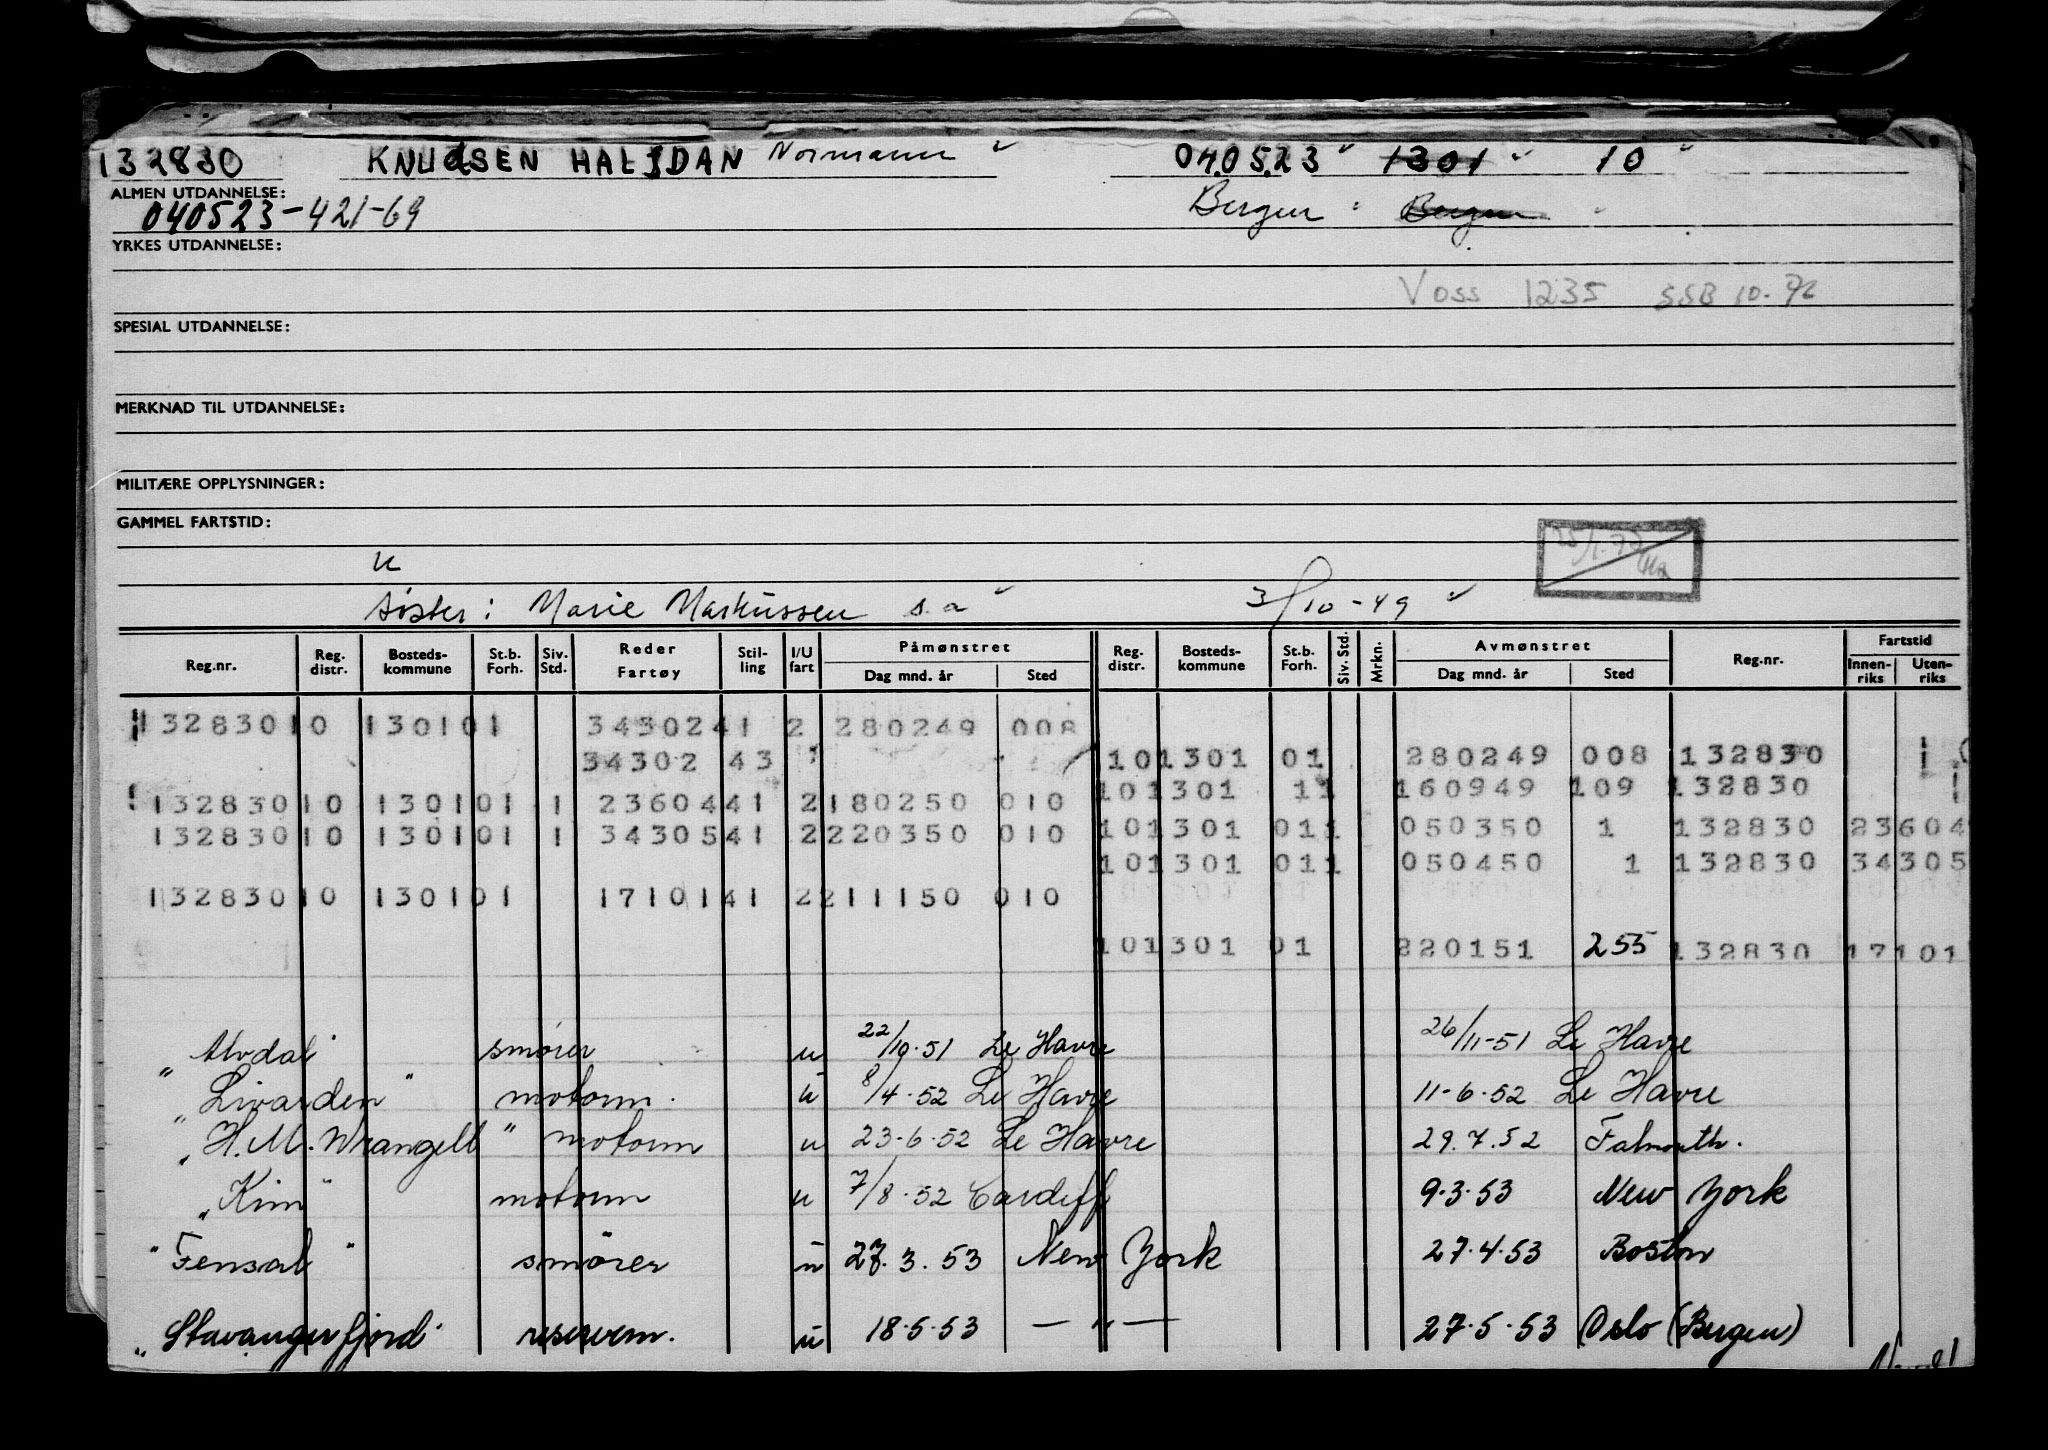 132830 KNUDSEN HALFDAN Normann " 04.05.23 " 1301 " 10 "
ALMEN UTDANNELSE:
040523-421-69 Bergen " Bergen "
YRKES UTDANNELSE:
Voss 1235 SSB 10.76
SPESIAL UTDANNELSE:
MERKNAD TIL UTDANNELSE:
MILITÆRE OPPLYSNINGER:
GAMMEL FARTSTID:
u
søster: Marie Markussen s.a " 3/10-49 "
Reg.nr. Reg. distr. Bosteds-kommune St.b. Forh. Siv. Std. Reder Fartøy Stil-ling I/U fart Påmønstret Dag mnd. år Sted Reg. distr. Bosteds-kommune St.b. Forh. Siv. Std. Mrkn. Avmønstret Dag mnd. år Sted Reg.nr. Fartstid Innen-riks Uten-riks
132830 10 1301 01 34302 41 2 280249 008
34302 43 10 1301 01 280249 008 132830
10 1301 11 160949 109 132830
132830 10 1301 01 1 23604 41 2 180250 010
10 1301 01 1 050350 1 132830 23604
132830 10 1301 01 1 34305 41 2 220350 010
10 1301 01 1 050450 1 132830 34305
132830 10 1301 01 17101 41 2 211150 010
10 1301 01 220151 255 132830 17101
"Alvdal" smører u 22/10.51 Le Havre 26/11-51 Le Havre
"Livarden" motorm. u 8/4.52 Le Havre 11-6.52 Le Havre
"H.M. Wrangell" motorm u 23-6.52 Le Havre 29.7.52 Falmouth.
"Kim" motorm u 7/8.52 Cardiff 9.3.53 New York
"Fensal" smører u 27.3.53 New York 27.4.53 Boston
"Stavangerfjord" reserverm. u 18.5.53 — " — 27.5.53 Oslo (Bergen)